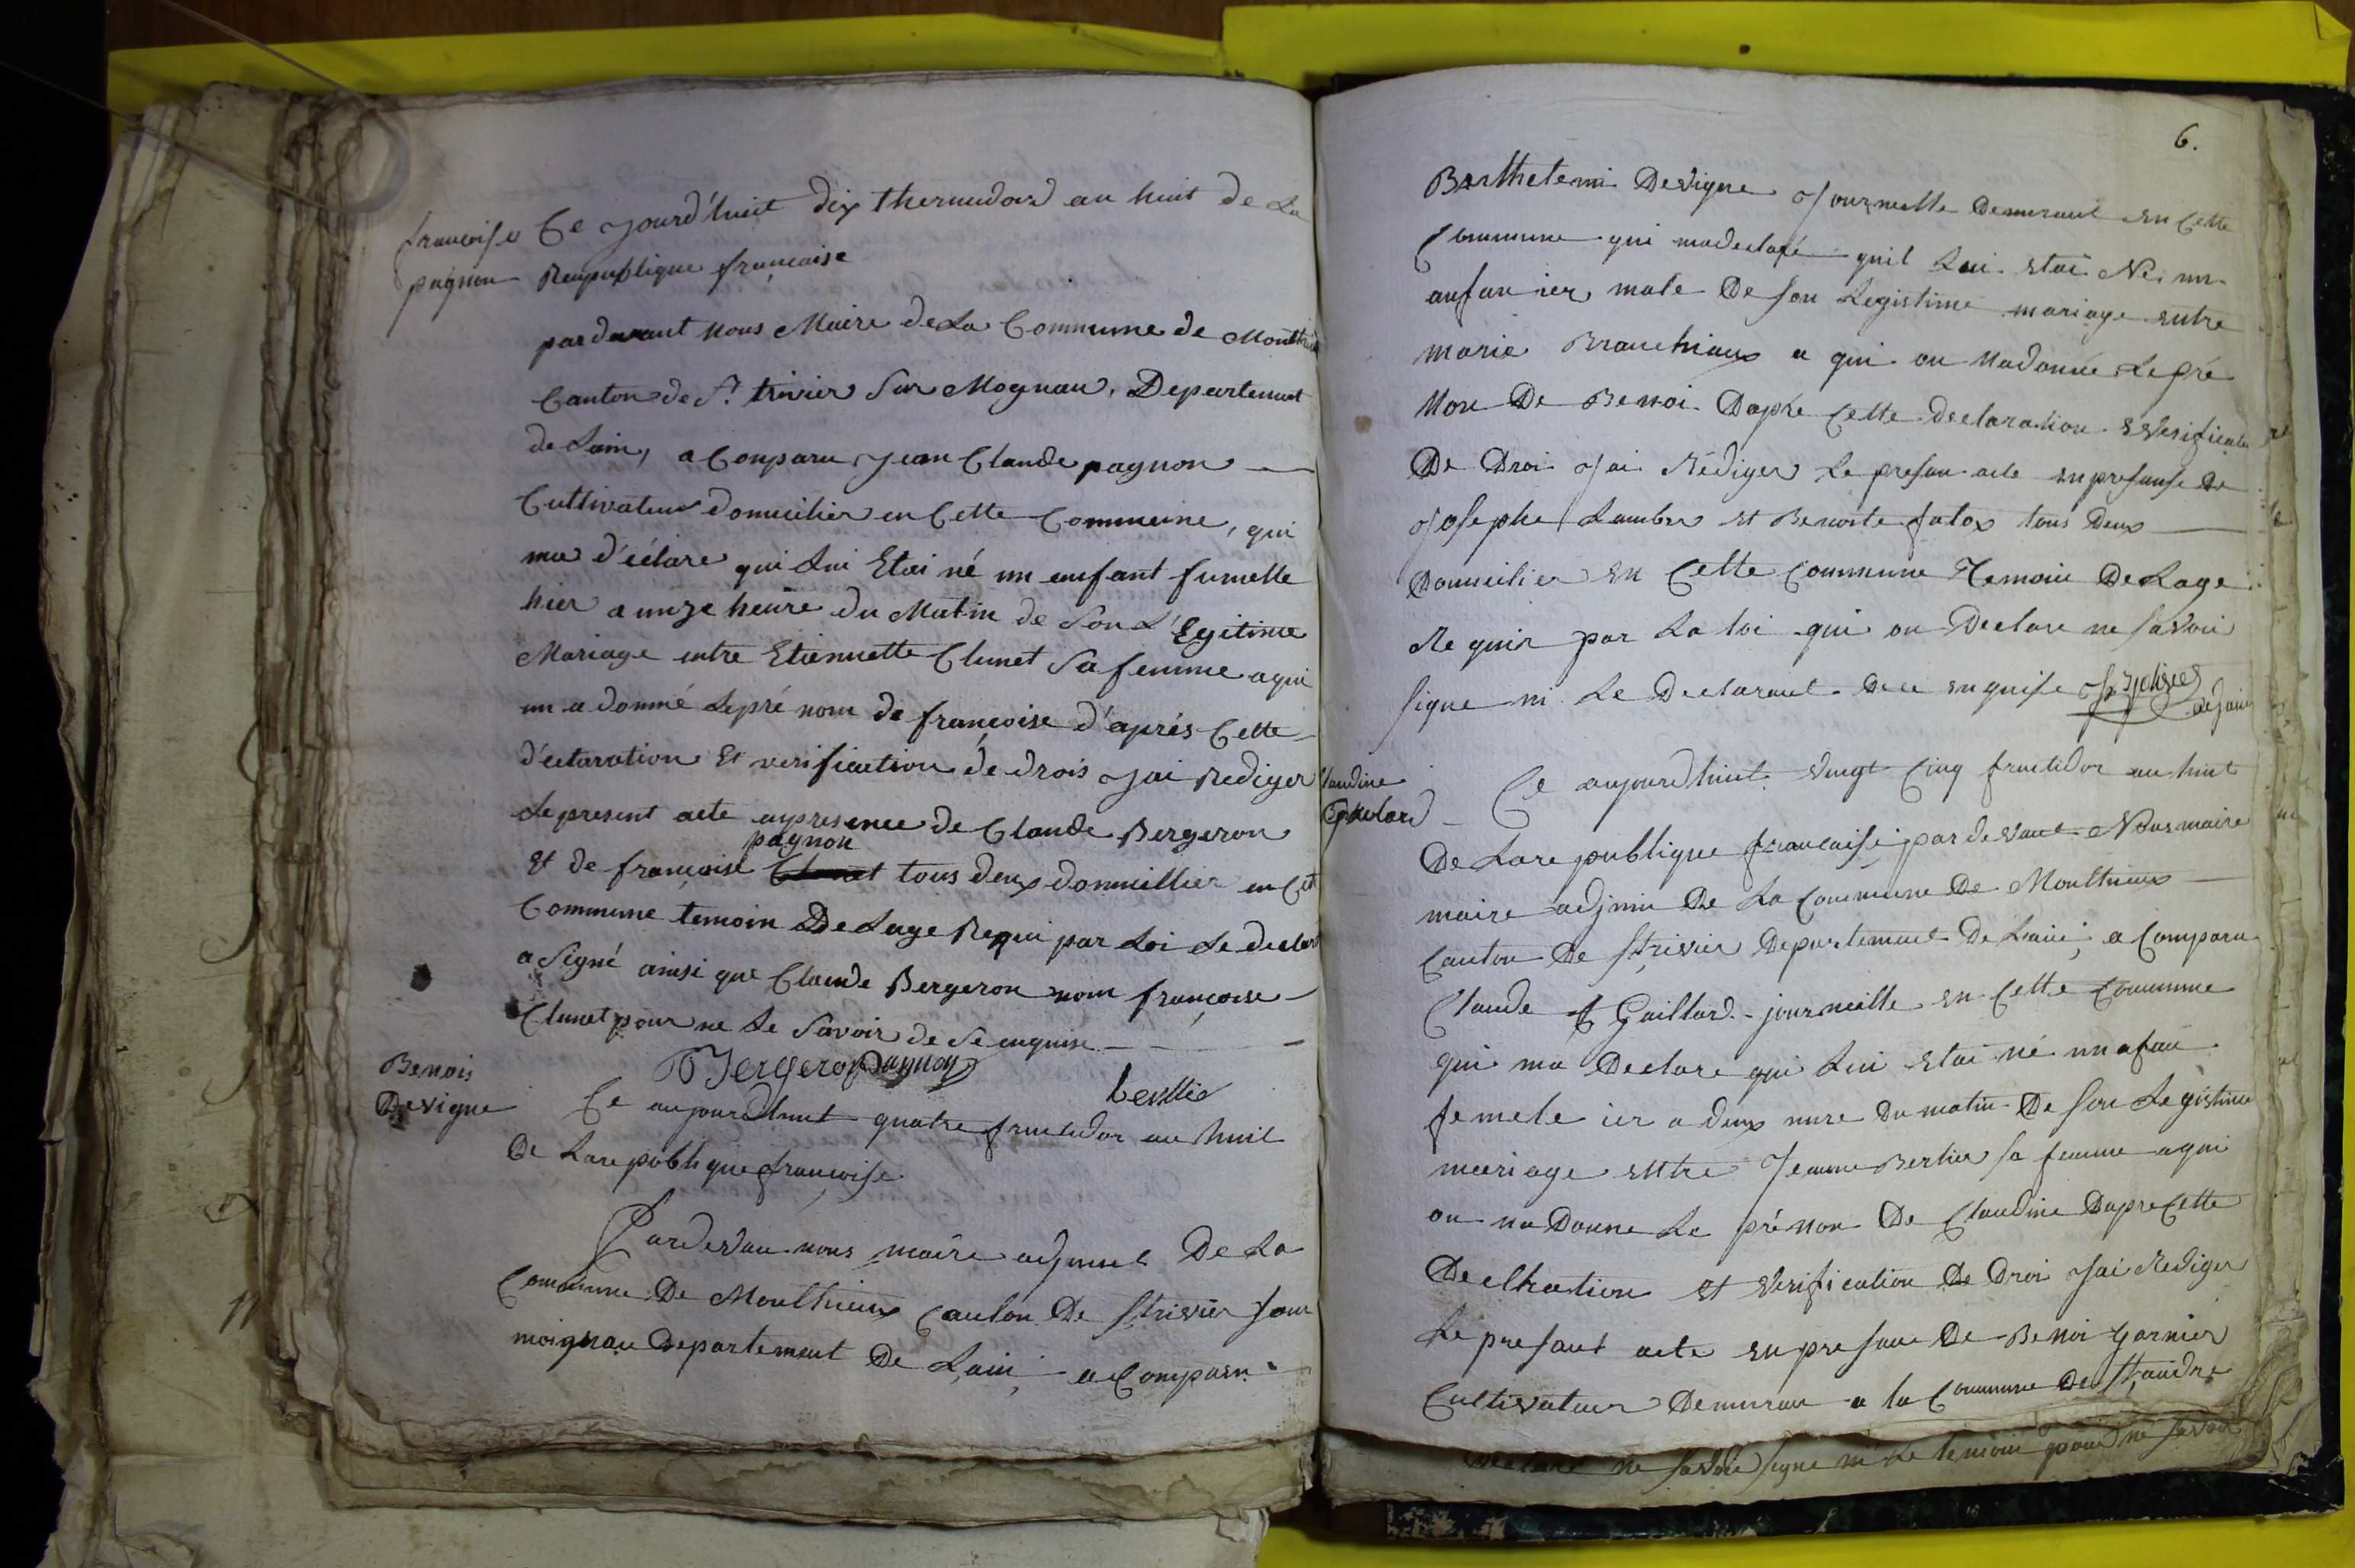 françoise
pagnon
Ce jourd'huit dix thermidord an huit de La
Reupublique française
pardevant nous Maire de La Commune de Monthieu
Canton de St. trivier Sur Mognau, Departement
de Lain, a Conparu jean Claude pagnon
Cultivateur domicilier en Cette Commune, qui
ma d'éclare qui Lui Etoi né un enfant fumelle
hier a unze heure du Matin de Son L'Egitime
Mariage entre Etiennette Clunet Sa femme aqui
un a donné Lepré nom de françoise d'aprés Cette
d'éclaration Et verification de drois Jai Rediger
Le present acte anpresence de Claude Bergeron
pagnon
Et de françoise Clunet tous deux domicillier en Cet
Commune temoin De Lage Requi par Loi Le declart
a Signé ainsi que Claude Bergeron nom françoise
Clunet pour ne Le Savoir de Se enquise
Bergeron Pagnon
Benois
Devigne
Ce aujourdhuit quatre fructidor an huil
De Larepublique françoise
Pardevan nous maire adjoint De La
Commune De Monthieux canton De Strivier Sour
moignau Departement De Lain a Comparu
6.
Barthelemi Devigne Journalle Demeraut en Cette
Commune qui madeclaré quil Lui Etai Né un
anfan ier male De Son Legistime mariage entre
marie Branchiaux a qui on Nadonné Le pré
Non De Benoi Daprè Cette Declaration
De Droi Jai Rédiger Le presan acte en presanse De
Josephe Lambr et Benoite tous Deux
Domicilier en Cette Commune Temoin De Lage
Requir par La loi qui on Declare ne Savoir
Signe ni Le Declaraut De ce enquise
Claudine
Ce aujourdhuit vingt Cinq fructidor an huit
De Larepublique francaise pardevant Nous maire
maire adjoin De La Commune De Monthieux
Canton De Strivier Departement De Lain a Comparu
Claude Gaillard journalle en Cette Commune
qui ma Declare qui Lui Etai né un afan
femele ier a deux eure Du matin De Son Legistime
mariage entre Jeanne Berlier Sa femme aqui
on na Donne Le prénon De Claudine Dapre Cette
Declration et Verification De Droi Jai Rediger
Le presant acte en presanse De Benoi Garnier
Cultivateur Demuran a la Commune De Standre
Declare ne Savoir Signe ni Le temoin pour ne Savoir